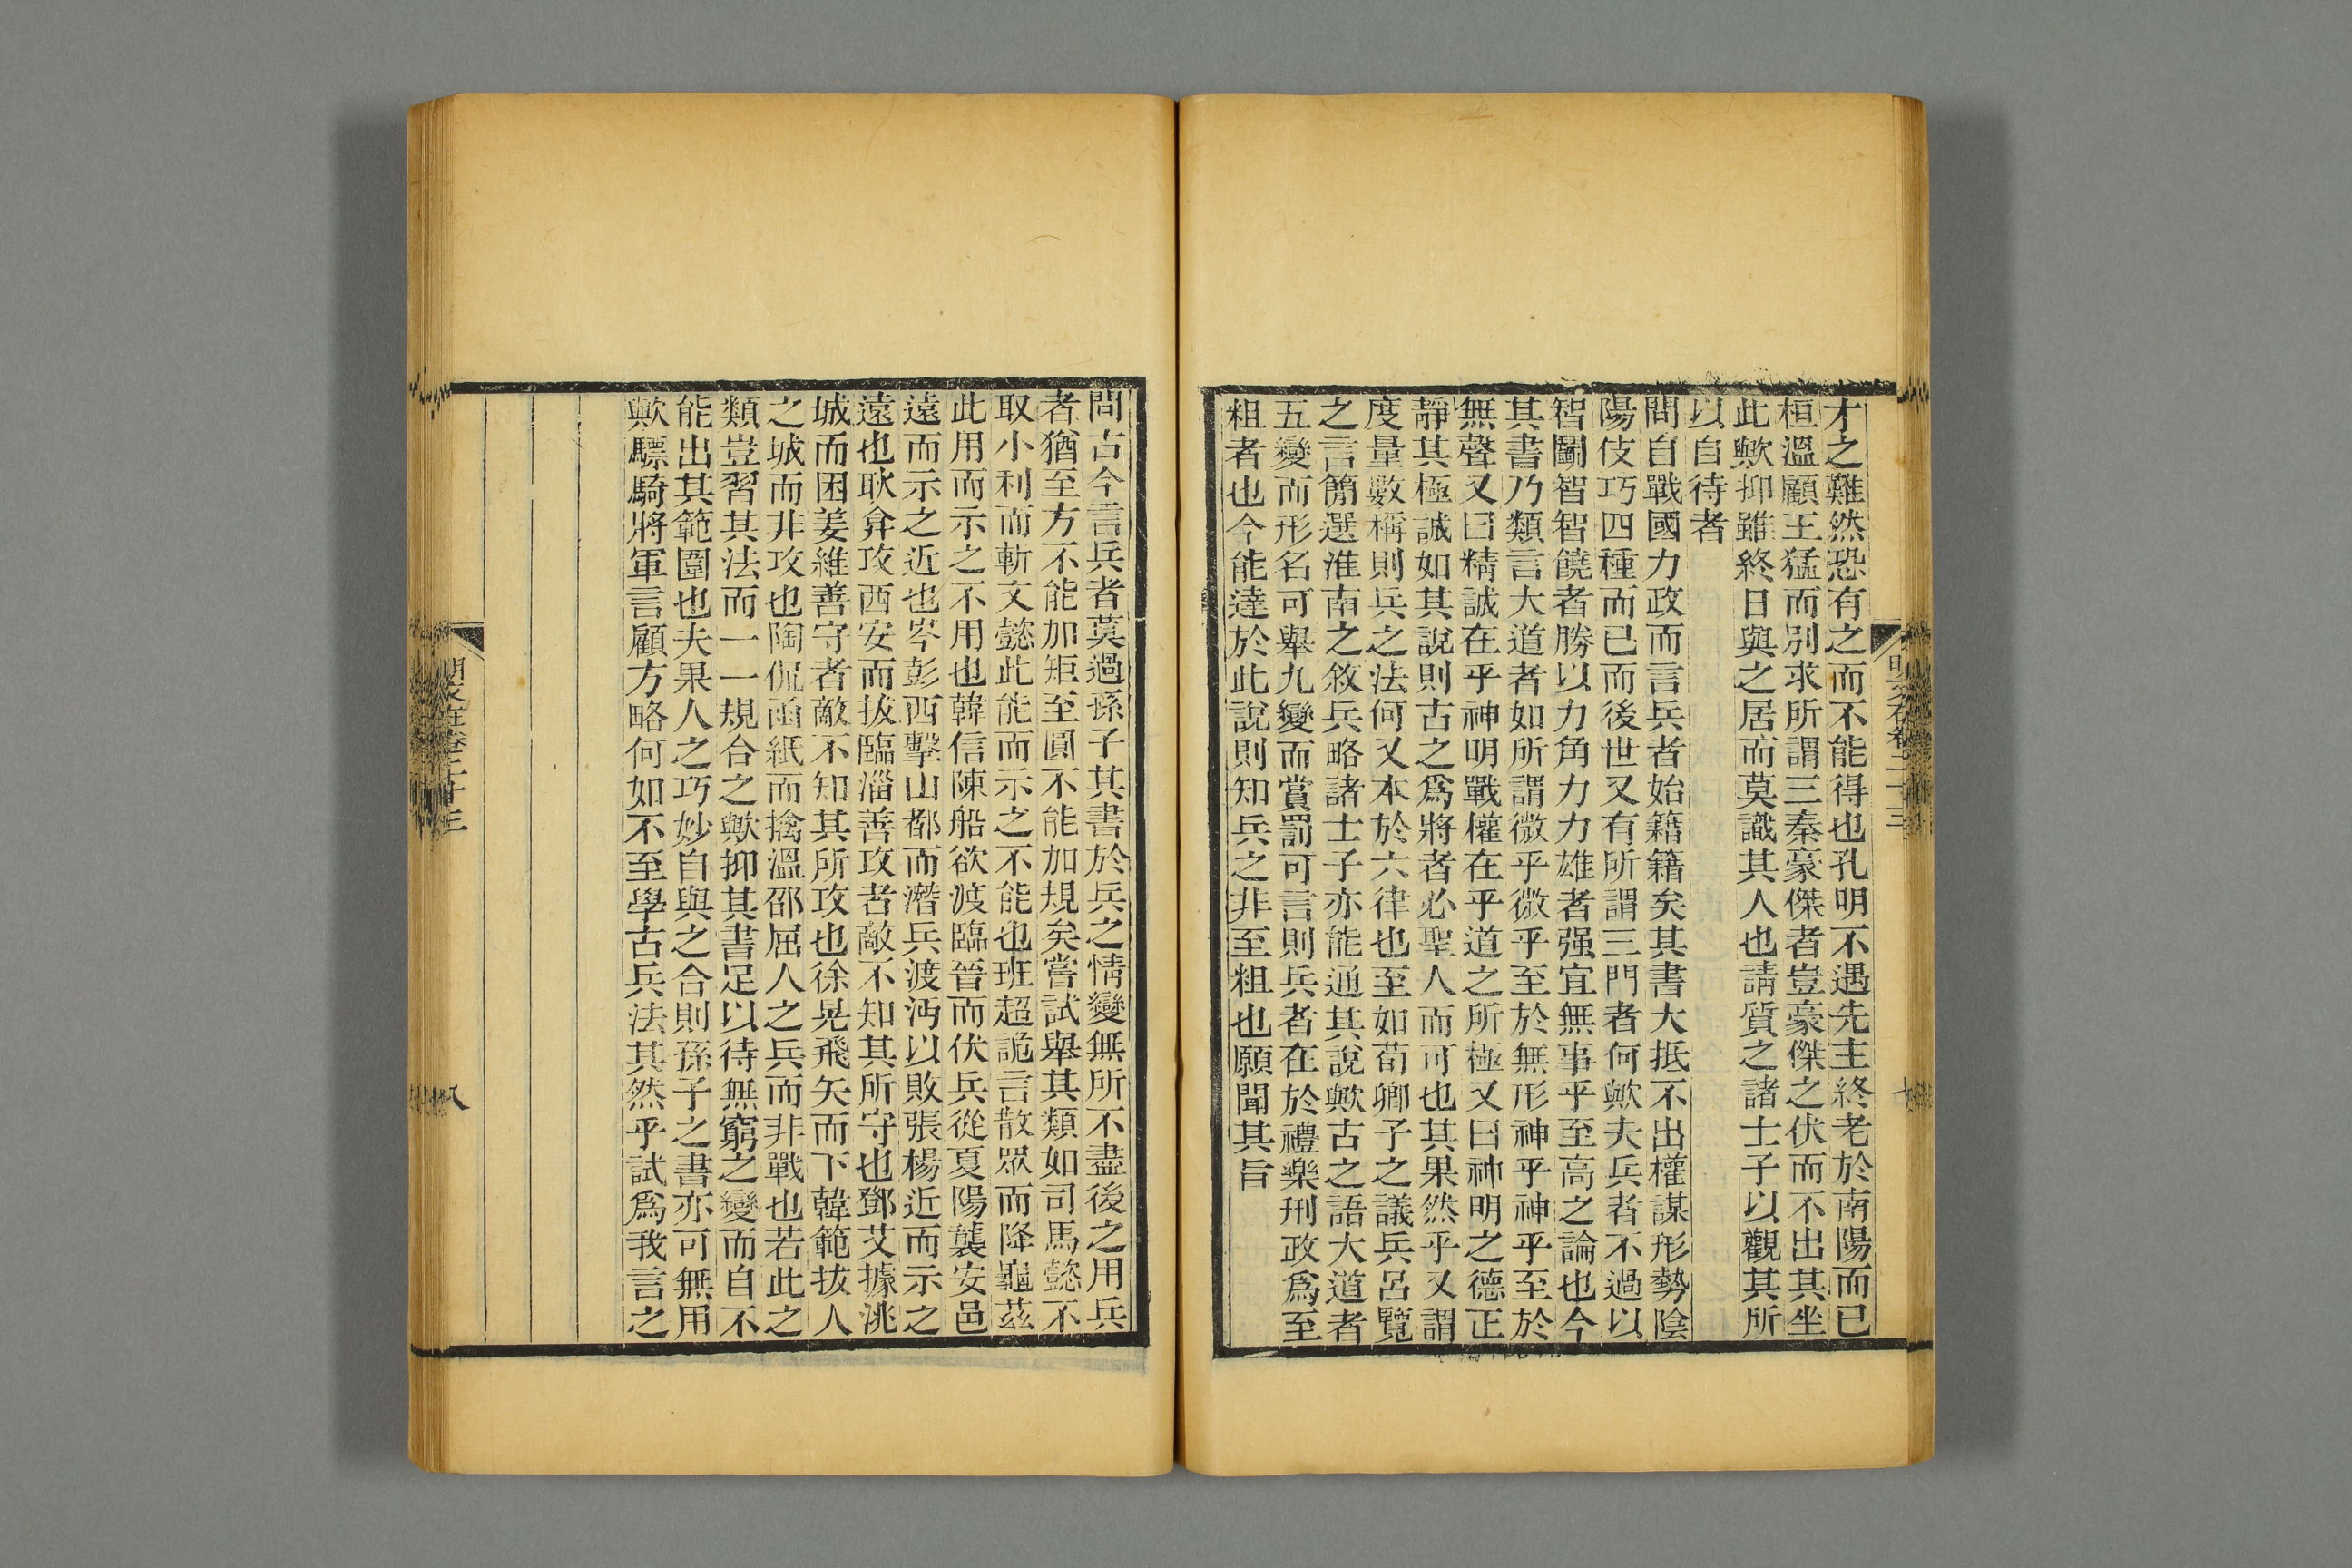 才之難然恐有之而不能得也孔明不遇先主終老於南陽而已
桓溫顧王猛而別求所謂三秦豪傑者豈豪傑之伏而不出其坐
此歟抑雖終日與之居而莫識其人也請質之諸士子以觀其所
以自待者
問自戰國力政而言兵者始籍籍矣其書大抵不出權謀形勢陰
陽伎巧四種而已而後世又有所謂三門者何歟夫兵者不過以
智鬭智智饒者勝以力角力力雄者强宜無事乎至高之論也今
其書乃類言大道者如所謂微乎微乎至於無形神乎神乎至於
無聲又曰精誠在乎神明戰權在乎道之所極又曰神明之德正
靜其極誠如其說則古之爲將者必聖人而可也其果然乎又謂
度量數稱則兵之法何又本於六律也至如荀卿子之議兵呂覽
之言簡選淮南之敘兵略諸士子亦能通其說歟古之語大道者
五變而形名可舉九變而賞罰可言則兵者在於禮樂刑政爲至
粗者也今能達於此說則知兵之非至粗也願聞其旨
問古今言兵者莫過孫子其書於兵之情變無所不盡後之用兵
者猶至方不能加矩至圓不能加規矣嘗試舉其類如司馬懿不
取小利而斬文懿此能而示之不能也班超詭言散眾而降龜茲
此用而示之不用也韓信陳船欲渡臨晉而伏兵從夏陽襲安邑
遠而示之近也岑彭西擊山都而潛兵渡沔以敗張楊近而示之
遠也耿弇攻西安而拔臨淄善攻者敵不知其所守也鄧艾據洮
城而困姜維善守者敵不知其所攻也徐晃飛矢而下韓範拔人
之城而非攻也陶侃函紙而擒溫邵屈人之兵而非戰也若此之
類豈習其法而一一規合之歟抑其書足以待無窮之變而自不
能出其範圍也夫果人之巧妙自與之合則孫子之書亦可無用
歟驃騎將軍言顧方略何如不至學古兵法其然乎試爲我言之
八